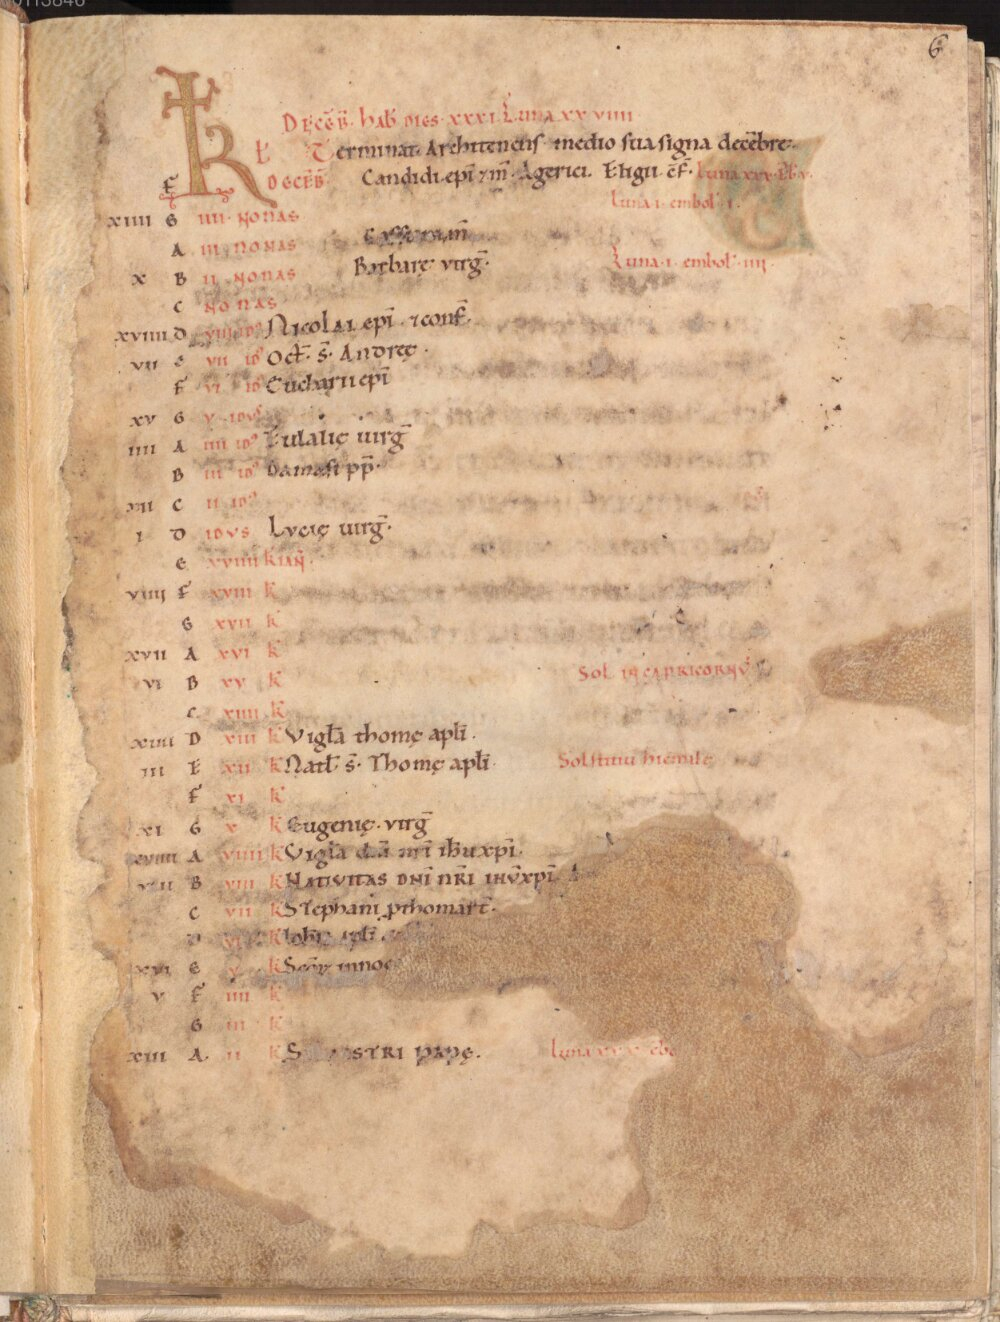 0113846
6
DECĒB. hab dies xxxi Luna xx viiii
KL Terminat Architenens medio sua signa decēbre.
F DECĒB. Candidi epī & m̄. Agerici. Eligii cf̄.
xiiii G iiii NONAS Luna i embol i.
A iii NONAS
x B ii NONAS Barbarę virḡ. Luna i embol iiij
C NONAS
xviiii D viii id' Nicolai epī & conf̄.
vii E vii id' Oct̄. s̄. Andreę.
F vi id' Eucharii epī
xv G v idus
iiii A iiii id' Eulalię uirḡ
B iii id' Damasi pp̄.
xii C ii id'
i D idvs Lvcię uirḡ.
E xviiii k̄ iañ.
viiii F xviii k̄
G xvii k̄
xvii A xvi k̄
vi B xv k̄ Sol in capricornū
C xiiii k̄
xiiii D xiii k̄ Vigla thomę apli.
iii E xii k̄ Natl s̄. Thomę apli Solstitiū hiemale
F xi k̄
xi G x k̄ Eugenię. virḡ
A viiii k̄ Vigla dn̄i nr̄i ihu xpi.
B viii k̄ NATIVITAS DNĪ NR̄I IHV̄ XPI
C vii k̄ Stephani pthomart̄.
D vi k̄ Iohis apli
xvi E v k̄ Scōꝝ innoc
v F iiii k̄
G iii k̄
xiii A ii k̄ papę.